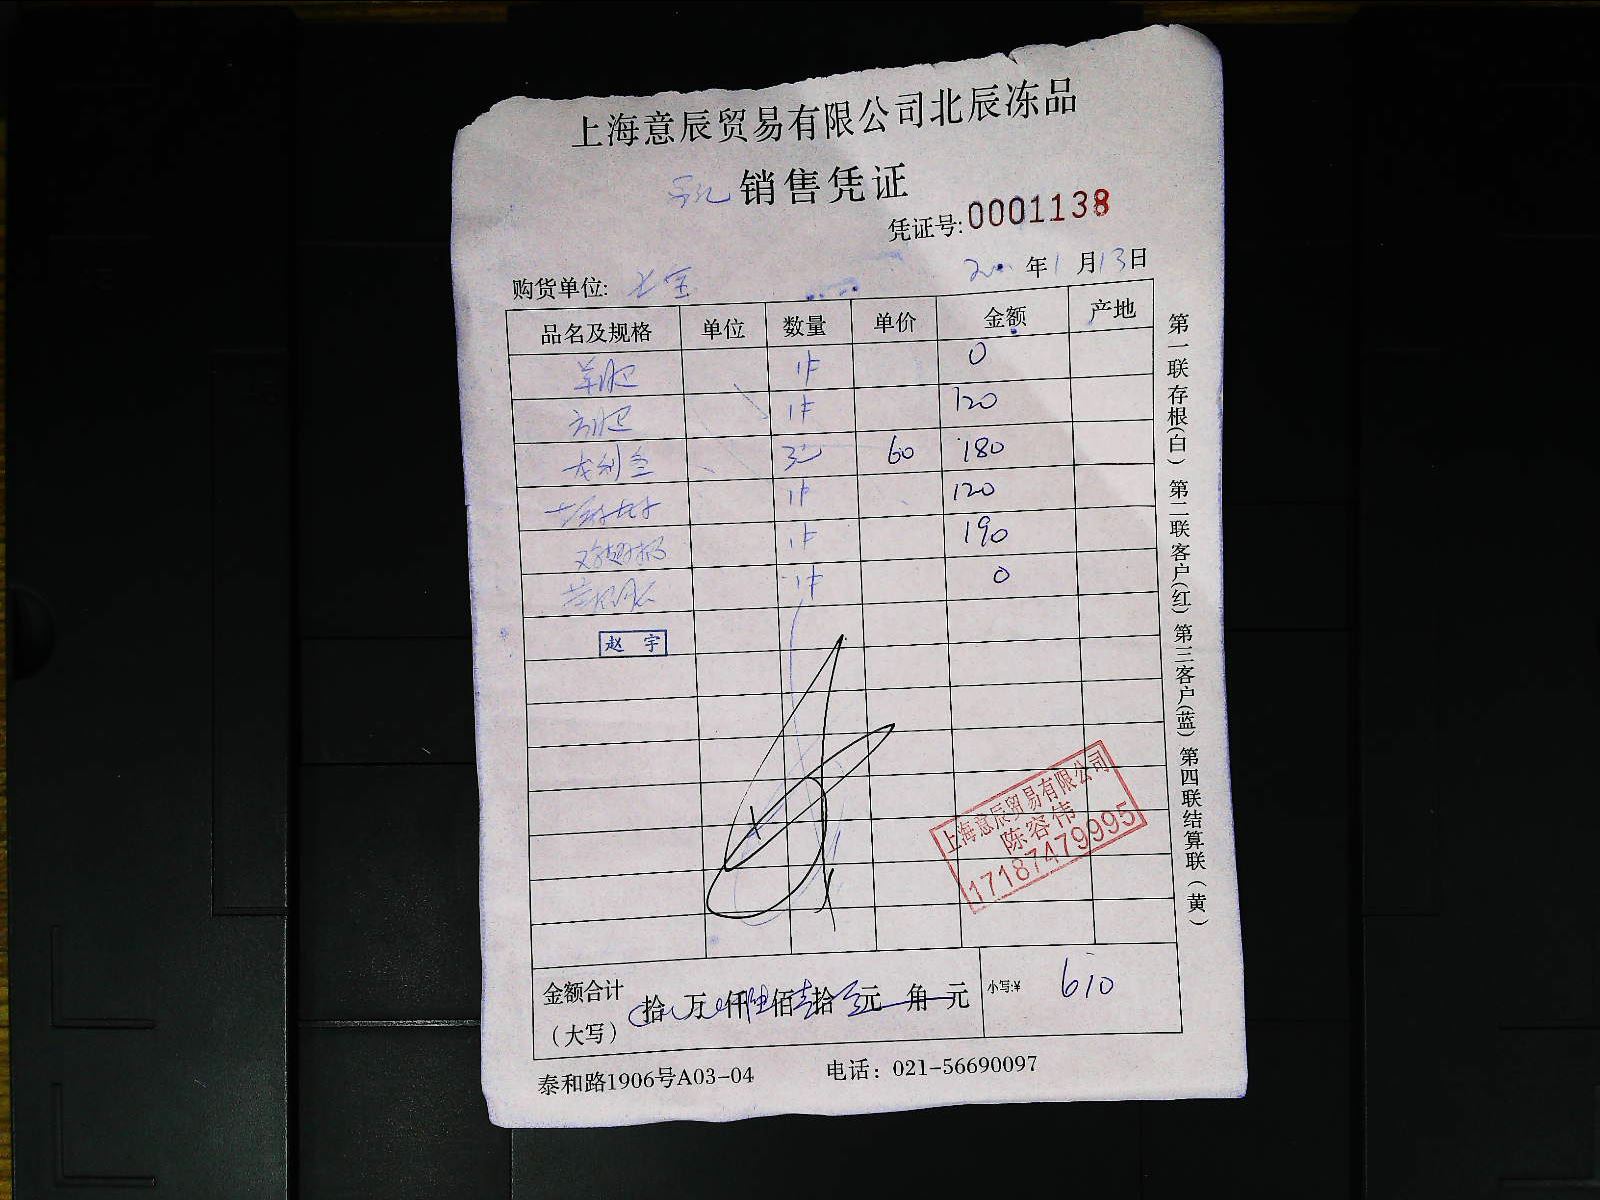 上海意辰贸易有限公司北辰冻品
销售凭证
凭证号:0001138
购货单位:
年1月13日
品名及规格 单位 数量 单价 金额 产地
羊肥 1件 0
方肥 1件 120
龙利鱼 3 60 180
1件 120
1件 190
1件 0
赵 宇
上海意辰贸易有限公司
陈容伟
17187479995
金额合计
（大写） 拾 万 仟陆佰壹拾 元 角 元 小写:¥ 610
泰和路1906号A03-04 电话：021-56690097
第一联存根(白) 第二联客户(红) 第三客户(蓝) 第四联结算联(黄)